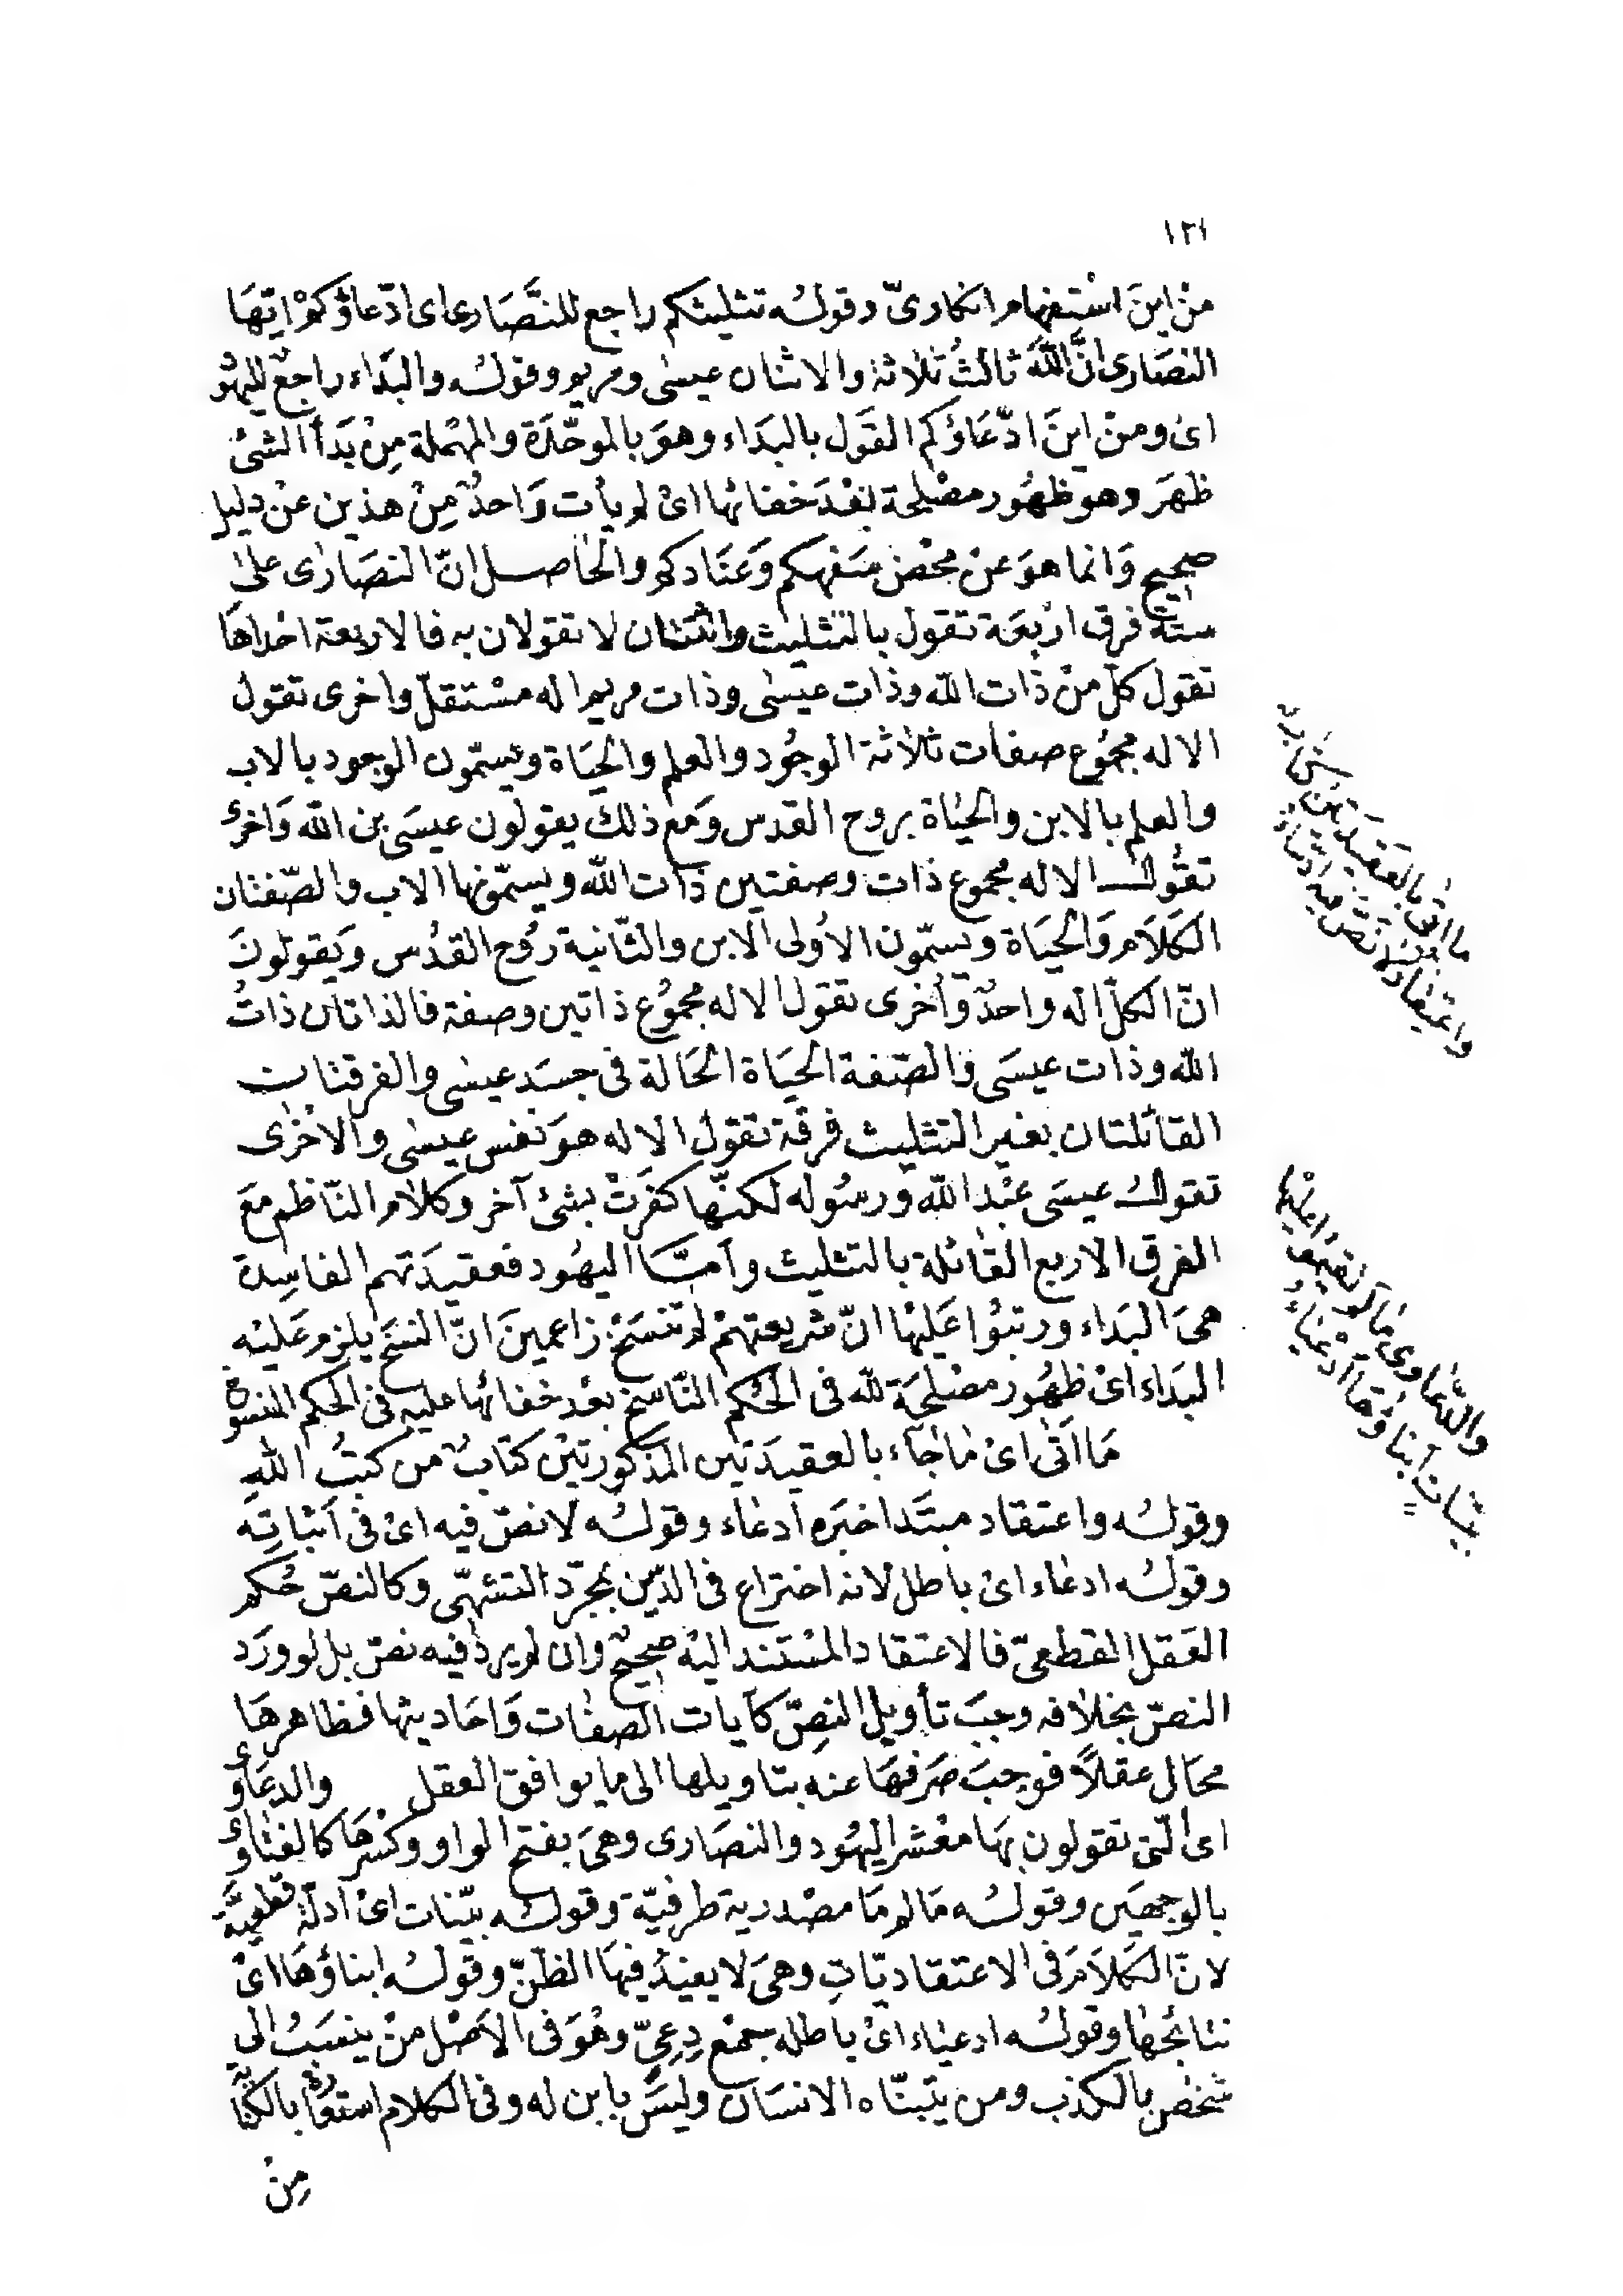 ١٢١
منْ اينَ اسْتِفهام انكارىّ وقولُه تثليثكم راجع للنَّصَارى اى ادّعاؤكمْ ايّها
النصَارى انَّ اللّٰهَ ثالثُ ثلاثة والاثنان عيسٰى ومريم وقولُه والبدَاء راجعٌ لليهُو
اىْ ومنْ اينَ ادّعَاؤكم القَول بالبدَاء وهوَ بالموحّدَة والمهْملة مِنْ بَدَأ الشئ
ظهَر وهو ظهُور مصْلحة بعْدَ خفائها اىْ لم يأت وَاحدٌ مِنْ هذين عنْ دليل
صحيح وَانما هوَ عنْ محْض سَفهكم وَعنَادكم والحٰاصل انّ النصَارٰى علىٰ
ستّة فرق ارْبعَة تقول بالتثليث واثنتان لا تقولان به فالاربعة احْداهَا
تقول كلّ منْ ذات اللّٰه وذات عيسٰى وذات مريم اله مسْتقلّ واخرى تقول
الاله مجمُوع صفات ثلاثة الوجُود والعلم والحيَاة ويسَمّون الوجود بالاب
والعلم بالابن والحيٰاة بروح القدس وَمع ذلك يقولون عيسَى بن اللّٰه وَاخرى
تقُول الاله مجموع ذات وصفتين ذات اللّٰه ويسمّونها الاب والصّفتان
الكلَام وَالحيَاة ويسمّون الاوُلى الابن والثّانية رُوح القدُس وَيقولونَ
انّ الكلّ اله واحدٌ وَاخرى تقول الاله مجمُوع ذاتين وصفة فالذاتان ذاتُ
اللّٰه وذات عيسَى وَالصّفة الحيَاة الحَالة فى جسَد عيسٰى والفرقتان
القائلتان بغير التثليث فرقة تقوْل الاله هوَ نفس عيسٰى والاخْرٰى
تقولُ عيسَى عبْد اللّٰه وَرسُوله لكنّها كفرَتْ بشئ آخر وكلاٰم النّاظم معَ
الفرق الاربع القٰائلة بالتثليث وأمّا اليهُود فعقيدَتهم الفاسِدة
هىَ البدَاء ورتبُوا عَليْها انّ شريعتهمْ لم تنسَخْ زاعمينَ انّ النسَخ يلزم عَليْه
البدَاء اىْ ظهُور مصْلحَة للّٰه فى الحْكم النّاسخ بعْد خفائها عليه فى الحكم المنسوخ
مَا اَتٰى اىْ مٰا جٰآء بالعقيدَتين المذكورتيْن كتَابٌ من كتبُ اللّٰهِ
وقولُه واعتقاد مبتَدا خبَره ادعٰاء وقولُه لا نصّ فيه اىْ فى اثبَاتِه
وقولُه ادعٰاء اىْ باطل لانه اختراع فى الدّين بمجرّد التشهّى وكالنصّ حُكم
العَقل القطعىّ فالاعتقاد المسْتند اليْه صحيحٌ وان لم يردْ فيه نصّ بل لو ورَد
النصّ بخلافه وجبَ تأويل النصِّ كآيات الصفٰات وَاحَاديثها فظاهرهَا
محَال عقلاً فوجبَ صَرفهَا عنه بتاويلها الى ما يوافق العقل والدعَاوى
اى التى تقولون بهَا معْشر اليهُود والنصَارى وهىَ بفتح الواو وكسْرهَا كالفتٰاوى
بالوجهَين وقولُه مَا لم مَا مصْدرية ظرفيّة وقولُه بيّنات اىْ ادلّة قطعيَّة
لانّ الكلَامَ فى الاعتقاديّاتِ وهىَ لا يفيْدُ فيهَا الظنّ وقولُه ابناؤهَا اىْ
نتائجُهٰا وقولُه ادعيٰاء اىْ باطله جمْع دِعِىّ وهُوَ فى الاَصْل منْ ينسَبُ الى
شخص بالكذب ومن يتبنّاه الانسَان وليسَ بابن له وفى الكلام استعٰارة بالكنٰاية
مِنْ
ما اتٰى بالعَقيدَتين كتٰاب
واعتِقادٌ لا نَصَّ فيه ادّعٰاءُ
والدَّعَاوىٰ مَا لم تُقيمُوا عليْها
بيّنٰاتٍ اَبناؤهَا اَدعْيٰاءُ